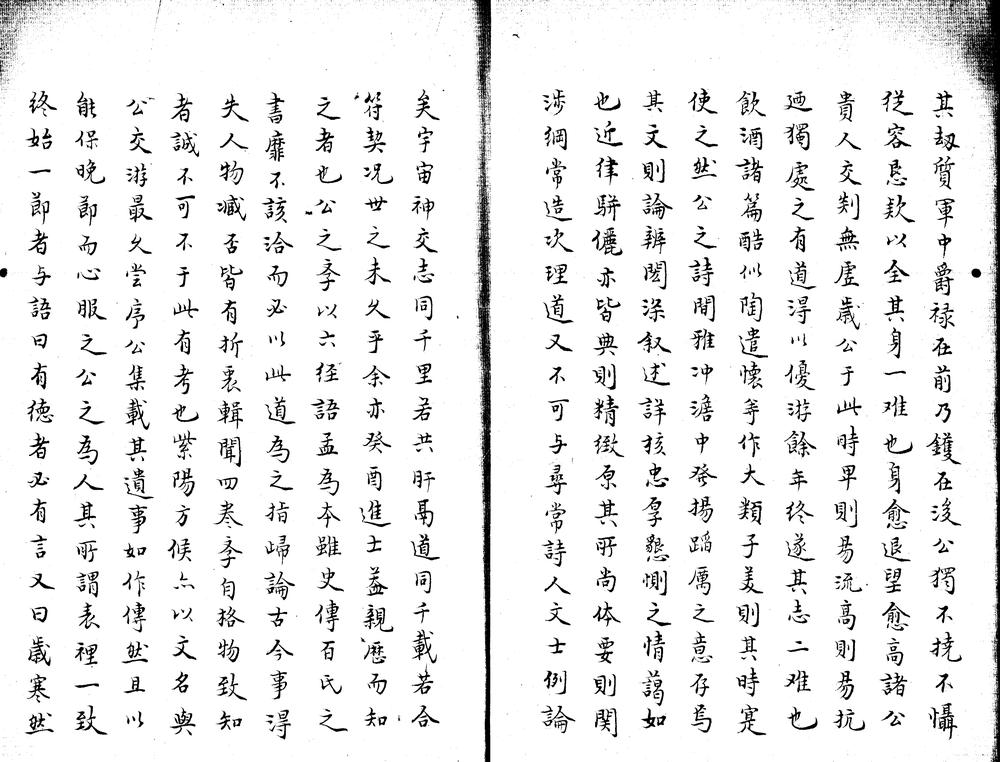 其刼質軍中爵禄在前乃鑊在後公獨不撓不懾
從容恳欵以全其身一难也身愈退望愈高諸公
貴人交剡無虚歳公于此時卑則易流高則易抗
廼獨處之有道淂以優游餘年终遂其志二难也
飲酒諸篇酷似陶遣懷等作大類子美則其時寔
使之然公之詩閒雅冲澹中發揚蹈厲之意存焉
其文則論辨閎深叙述詳核忠厚懇惻之情藹如
也近律駢儷亦皆典則精緻原其所尚体要則関
涉綱常造次理道又不可与尋常詩人文士例論
矣宇宙神交志同千里若共肝鬲道同千載若合
符契况世之未久乎余亦癸酉進士益親歴而知
之者也公之孝以六经語孟為本雖史傳百氏之
書靡不該洽而必以此道為之指歸論古今事淂
失人物臧否皆有折衷輯聞四卷孝自格物致知
者誠不可不于此有考也紫陽方候亦以文名與
公交游最久尝序公集載其遺事如作傳然且以
能保晚節而心服之公之為人其所謂表裡一致
终始一節者与語曰有德者必有言又曰歳寒然